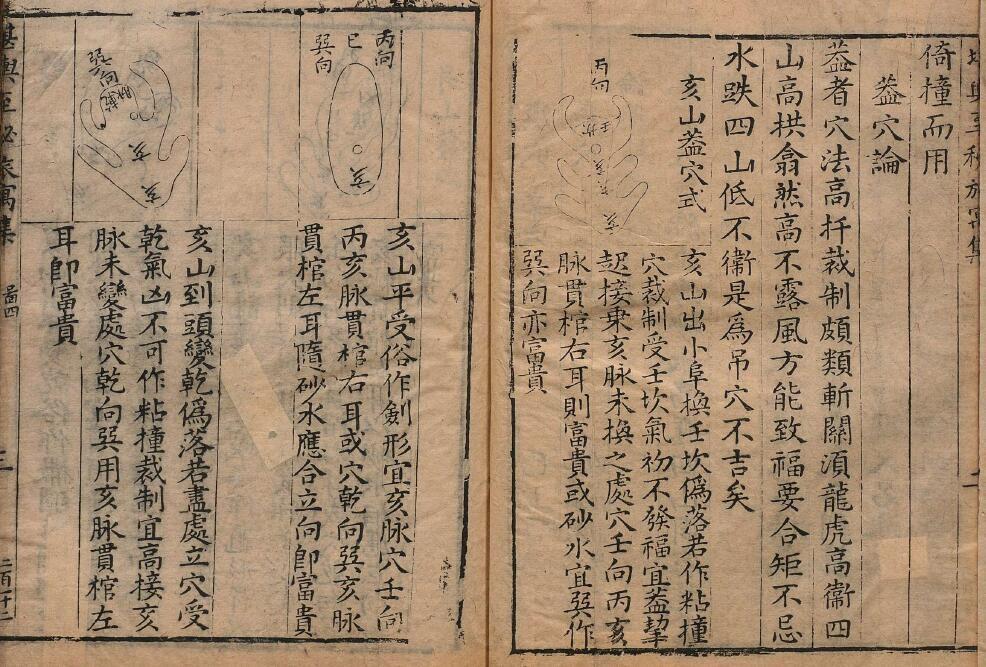 倚橦而用
葢穴論
葢者穴法高扦裁制頗類斬關湏龍虎高衞四
山高拱翕然高不露風方能致福要合矩不忌
水跌四山低不衞是爲吊穴不吉矣
亥山葢穴式
丙向
壬坎
亥
亥山出小阜換壬坎僞落若作粘撞
穴裁制受壬坎氣初不發福宜葢挈
起接東亥脉未換之處穴壬向丙亥
脉貫棺右耳則富貴或砂水宜巽作
巽向亦富貴
丙向
巳
巽向
亥
亥山平受俗作劍形宜亥脉穴壬向
丙亥脉貫棺右耳或穴乾向巽亥脉
貫棺左耳隨砂水應合立向卽富貴
巽向
亥
亥
亥山到頭變乾僞落若盡處立穴受
乾氣凶不可作粘撞裁制宜高接亥
脉未變處穴乾向巽用亥脉貫棺左
耳卽富貴
圖四
三